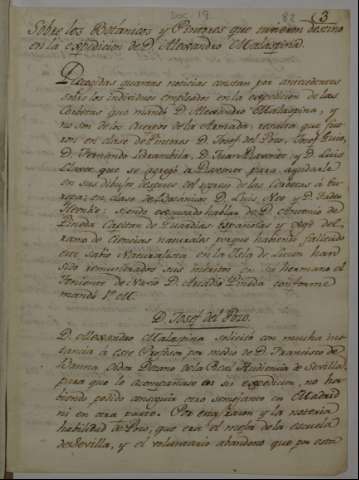 Doc 19. 82 (3
Sobre los Botánicos y Pintores que tuvieron destino
en la expedicion de D. Alexandro Malaspina.
Recogidas quantas noticias constan por antecedentes
sobre los individuos empleados en la expedicion de las
Corbetas que mandó D. Alexandro Malaspina, y
no son de los cuerpos de la Armada, resulta que fue-
ron en clase de Pintores D. Josef del Pozo, Josef Guio,
D. Fernando Brambila, D. Juan Ravenet y D. Luis
que se agregó a Ravenet para ayudarle
en sus dibujos despues del regreso de las Corbetas á Eu-
ropa: en clase de Botanicos D. Luis Neé y D. Tadeo
Heenke: siendo escusado hablar de D. Antonio de
Pineda Capitan de Guardias Españolas y Gefe del
ramo de Ciencias naturales porque habiendo fallecido
este sabio Naturalista en la Isla de Luzon han
sido remunerados sus meritos en su hermano el
Teniente de Navio D. Arcadio Pineda conforme
mandó
D. Josef del Pozo.
D. Alexandro Malaspina solicitó con mucha ins-
tancia á este por medio de D. Francisco de
Bruna, Oidor Decano de la Real Audiencia de Sevilla,
para que le acompañase en su expedicion, no ha-
biendo podido conseguir otro semejante en Madrid
ni en otra parte. Por esta razon y la notoria
habilidad de Pozo, que era el mejor de la escuela
de Sevilla, y el voluntario abandono que por esta